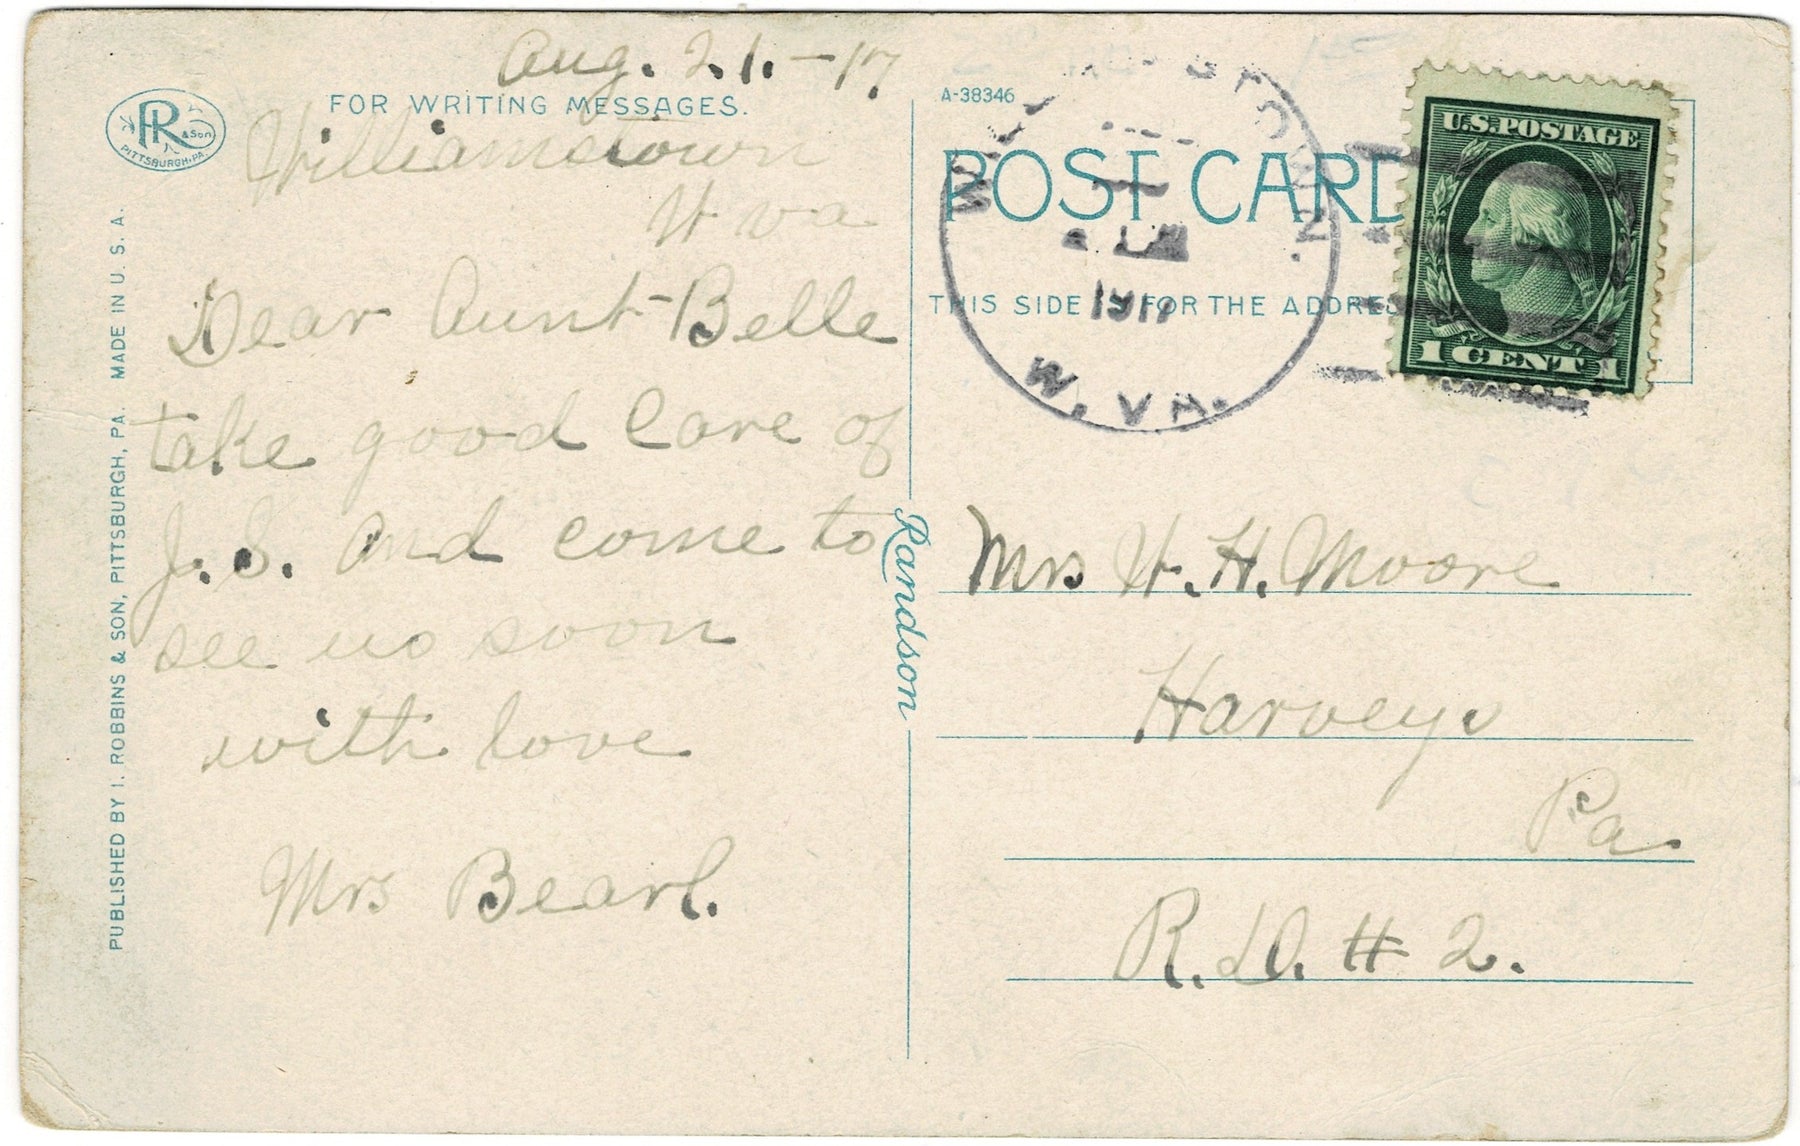 Aug. 21.-17
FOR WRITING MESSAGES.
R & Son
PITTSBURGH, PA.
Williamstown
W va
Dear Aunt-Belle
take good care of
J. S. and come to
see us soon
with love
Mrs Bearl.
PUBLISHED BY I. ROBBINS & SON, PITTSBURGH, PA. MADE IN U. S. A.
Randson
A-38346
POST CARD
THIS SIDE IS FOR THE ADDRES
W. VA.
U.S. POSTAGE
1 CENT 1
Mrs W. H. Moore
Harveys
Pa
R. D. # 2.